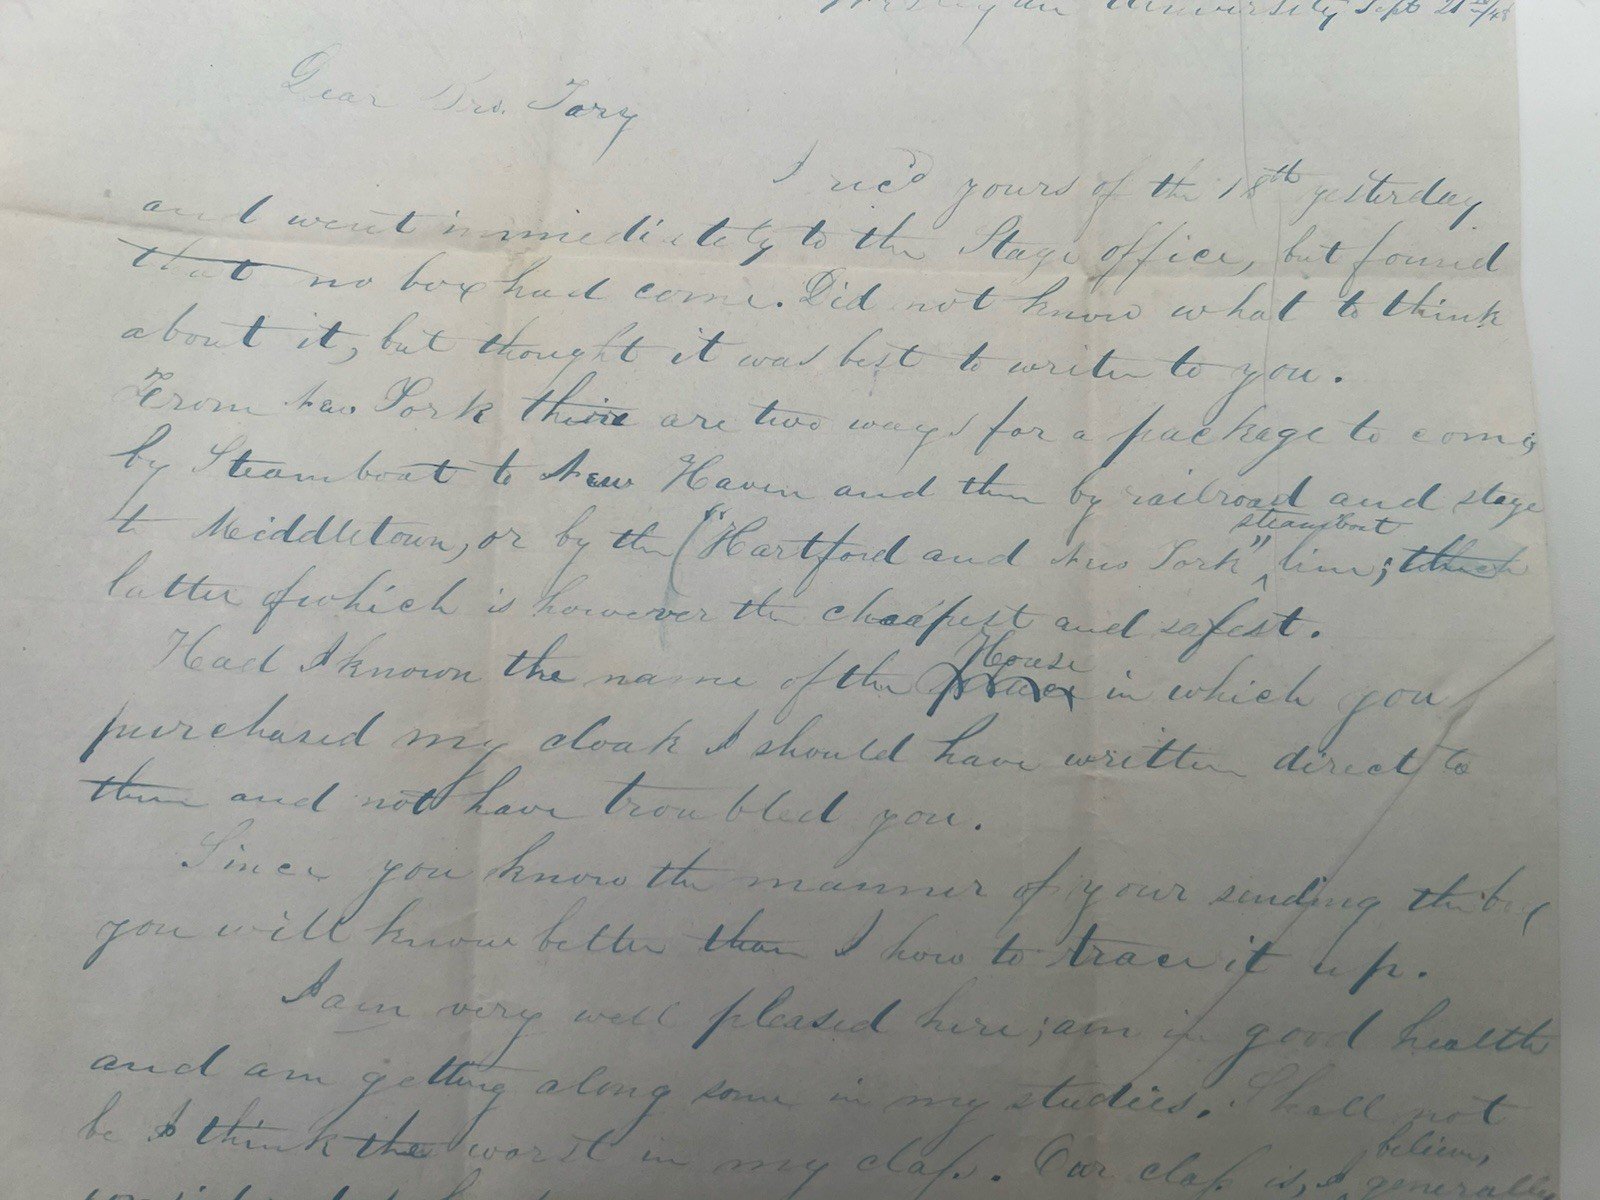 Wesleyan University Sept 21st/48
Dear Bro. Tory
I recd yours of the 18th yesterday
and went immediately to the Stage office, but found
that no box had come. Did not know what to think
about it, but thought it was best to write to you.
From New York there are two ways for a package to come,
by Steamboat to New Haven and then by railroad and stage
to Middletown, or by the ("Hartford and New York" steamboat line; which
latter of which is however the cheapest and safest.
Had I known the name of the House in which you
purchased my cloak I should have written direct to
them and not have troubled you.
Since you know the manner of your sending the box
you will know better than I how to trace it up.
I am very well pleased here; am in good health
and am getting along some in my studies. Shall not
be I think the worst in my class. Our class is, I believe, generally